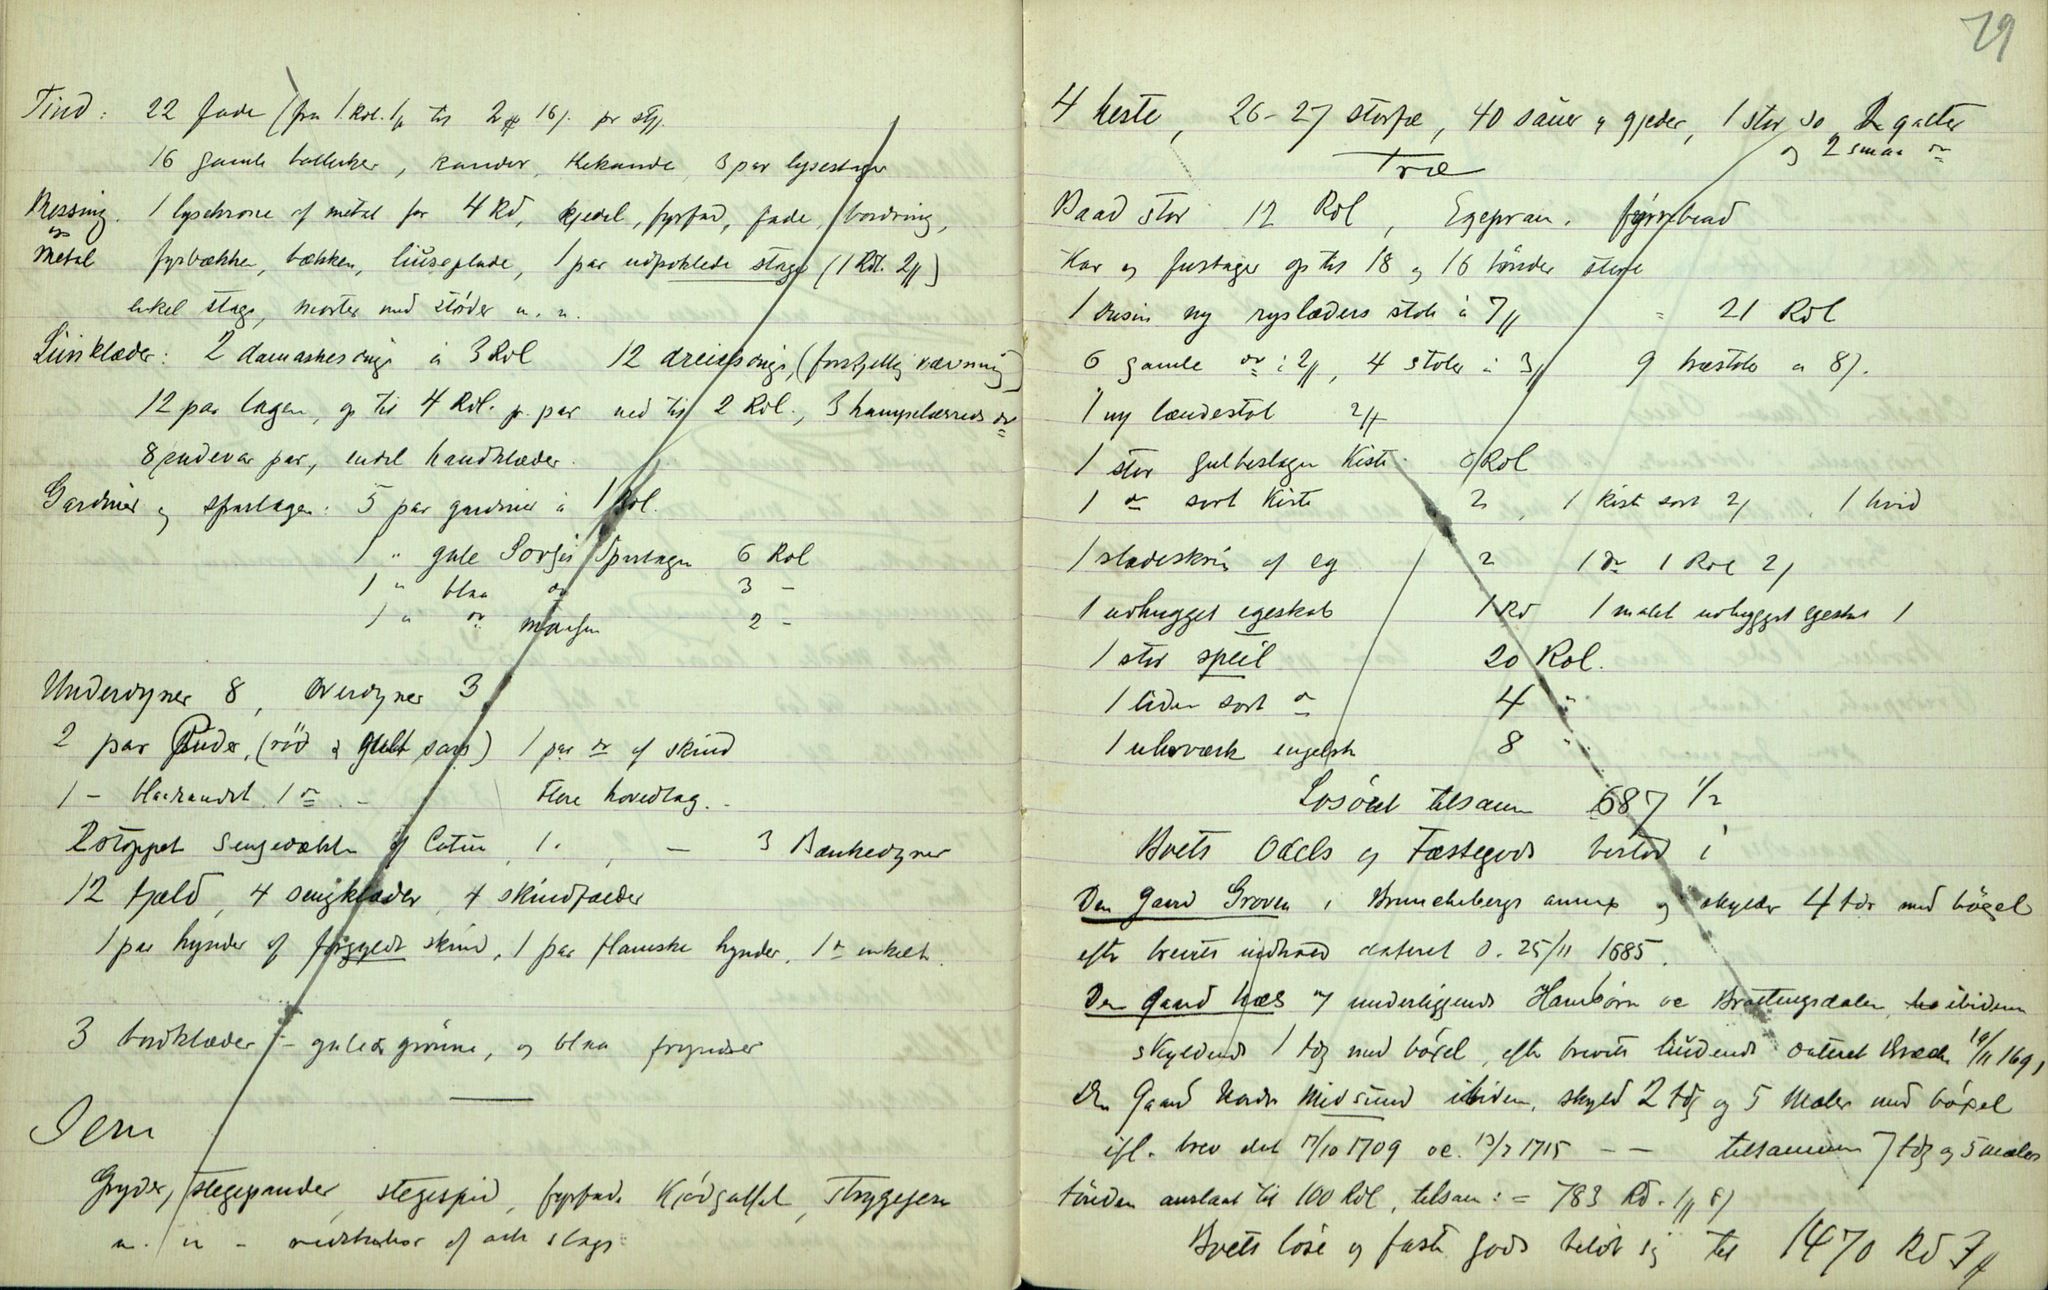 Tind: 22 fade (fra 1 Rdl. 1 til 2 16 pr stk.
16 gamle tallerker, kander, thekande, 3 par lysestager
Messing 1 lysekrone af metal for 4 Rd, kjedel, fyrfad, fade, bordring,
og
Metal fyrbækken, bækken, liuseplade, 1 par udpoklede stager (1 Rdl. 2)
enkel stage, morter med støder m. m.
Linklæder: 2 damaskesduge à 3 Rdl 12 dreielsduge, (forskjellig vævning)
12 par lagen, op til 4 Rdl. pr. par ned til 2 Rdl., 3 hampelærreds do
8 pudevar par, endel haandklæder.
Gardiner og sparlagen: 5 par gardiner à 1 Rdl.
1 " gule Sarses Sparlagen 6 Rdl
1 " blaa do 3 -
1 " do 2 -
Underdyner 8, overdyner 3
2 par Puder, (rød & gult sars) 1 par do af skind
1 - blaarandet 1 do - Flere hovedlag. -
2 stoppet Sengedækken af Catun, 1 - , - 3 Bænkedyner
12 tjeld, 4 sengklæder, 4 skindfælder
1 par hynder af forgyldt skind, 1 par flamske hynder, 1 do enkelt.
3 bordklæder - gule & grønne, og blaa fryndser
Jern
Gryder, stegepander, stegespid, fyrfade Kjødgaffel, strygejern
m. m - redskaber af alle slags
79
4 heste, 26-27 storfæ, 40 sauer & gjeder, 1 stor so, 2 galter
og 2 smaa do
Træ
Baad stor 12 Rdl, Egepram, færrebaad
Kar og fustager op til 18 og 16 tønder store
1 dusin ny ryslæders stole à 7 = 21 Rdl
6 gamle do à 2, 4 stoler à 3 9 træstoler a 8
1 ny lændestol 2
1 stor gulbeslagen Kiste 6 Rdl
1 do sort Kiste 2, 1 Kiste sort 2, 1 hvid
1 sladeskrin af eg 2 1 do 1 Rdl 2
1 udhugget egeskab 1 Rd 1 malet udhugget egeskab 1
1 stor speil 20 Rdl.
1 liden sort do 4 "
1 uhrværk engelsk 8 "
Løsøret tilsam 687 1/2
Boets Odels og Fæstegods bestod i
Den Gaard Groven i Brunchebergs annex og skylder 4 tdr med bøxel
efter brevets indhold dateret d. 25/11 1685.
Den Gaard Næs m/ underliggende Hambørn oc Brattingsdalen, ibidem
skyldende 1 tdr med bøxel, efter brevets liudende dateret 10/11 1691
Den Gaard Nordre Midsund ibidem, skyld 2 tdr og 5 Meler med bøxel
ifl. brev det 17/10 1709 oc. 13/7 1715 - - tilsammen 7 tdr og 5 meler
tønden anslaat til 100 Rdl, tilsam: = 783 Rd. 1 8
Boets løse og faste gods beløb sig til 1470 Rd 3